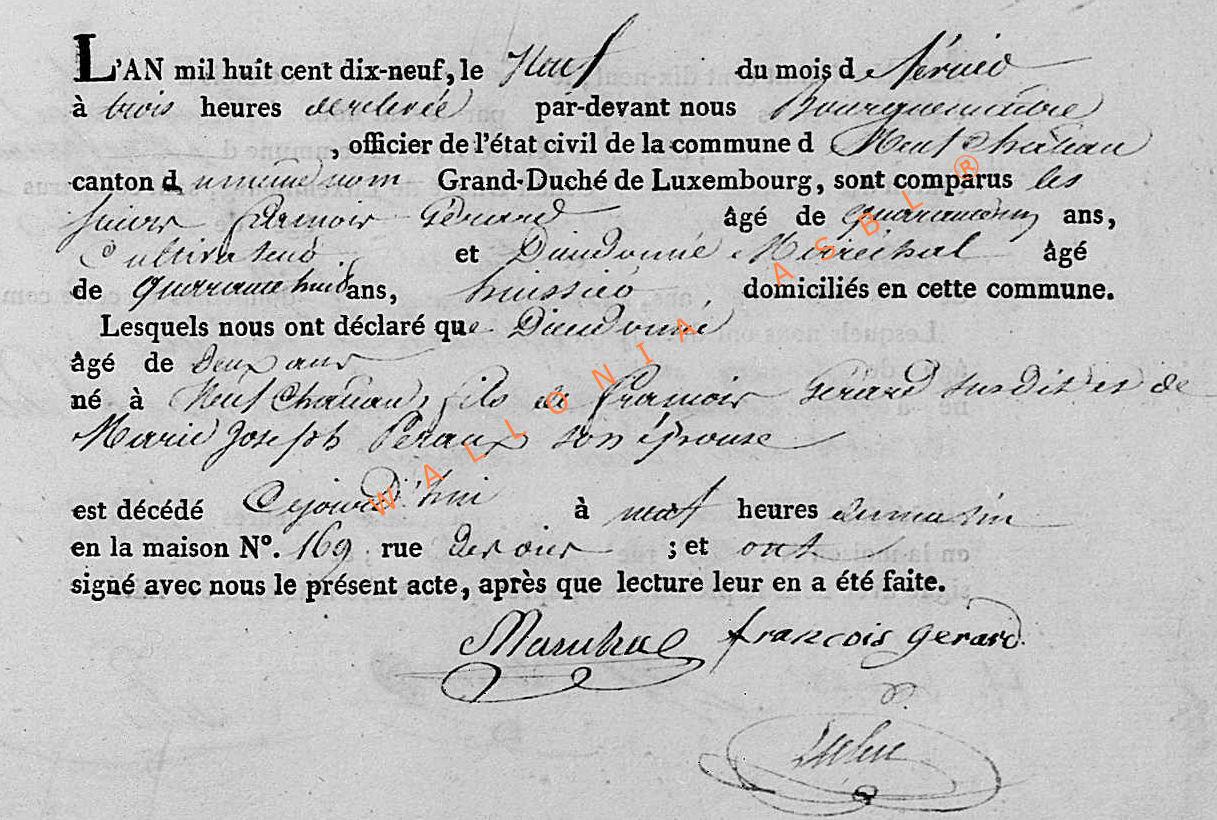 L'AN mil huit cent dix-neuf, le Neuf du mois d fevrier
à trois heures de relevée par-devant nous Bourguemaitre
, officier de l'état civil de la commune d Neufchâteau
canton d u même nom Grand-Duché de Luxembourg, sont comparus les
sieurs francois Gérard âgé de quarante ans,
Cultivateur et Dieudonné Maréchal âgé
de quarante huit ans, huissier, domiciliés en cette commune.
Lesquels nous ont déclaré que Dieudonné
âgé de deux ans
né à Neufchateau, fils de francois Gérard susdit et de
Marie Joseph Peraux son épouse
est décédé Cejourd'hui à neuf heures du matin
en la maison N°. 169, rue ; et ont
signé avec nous le présent acte, après que lecture leur en a été faite.
Marechal francois Gerard
WALLONIA ASBL ®